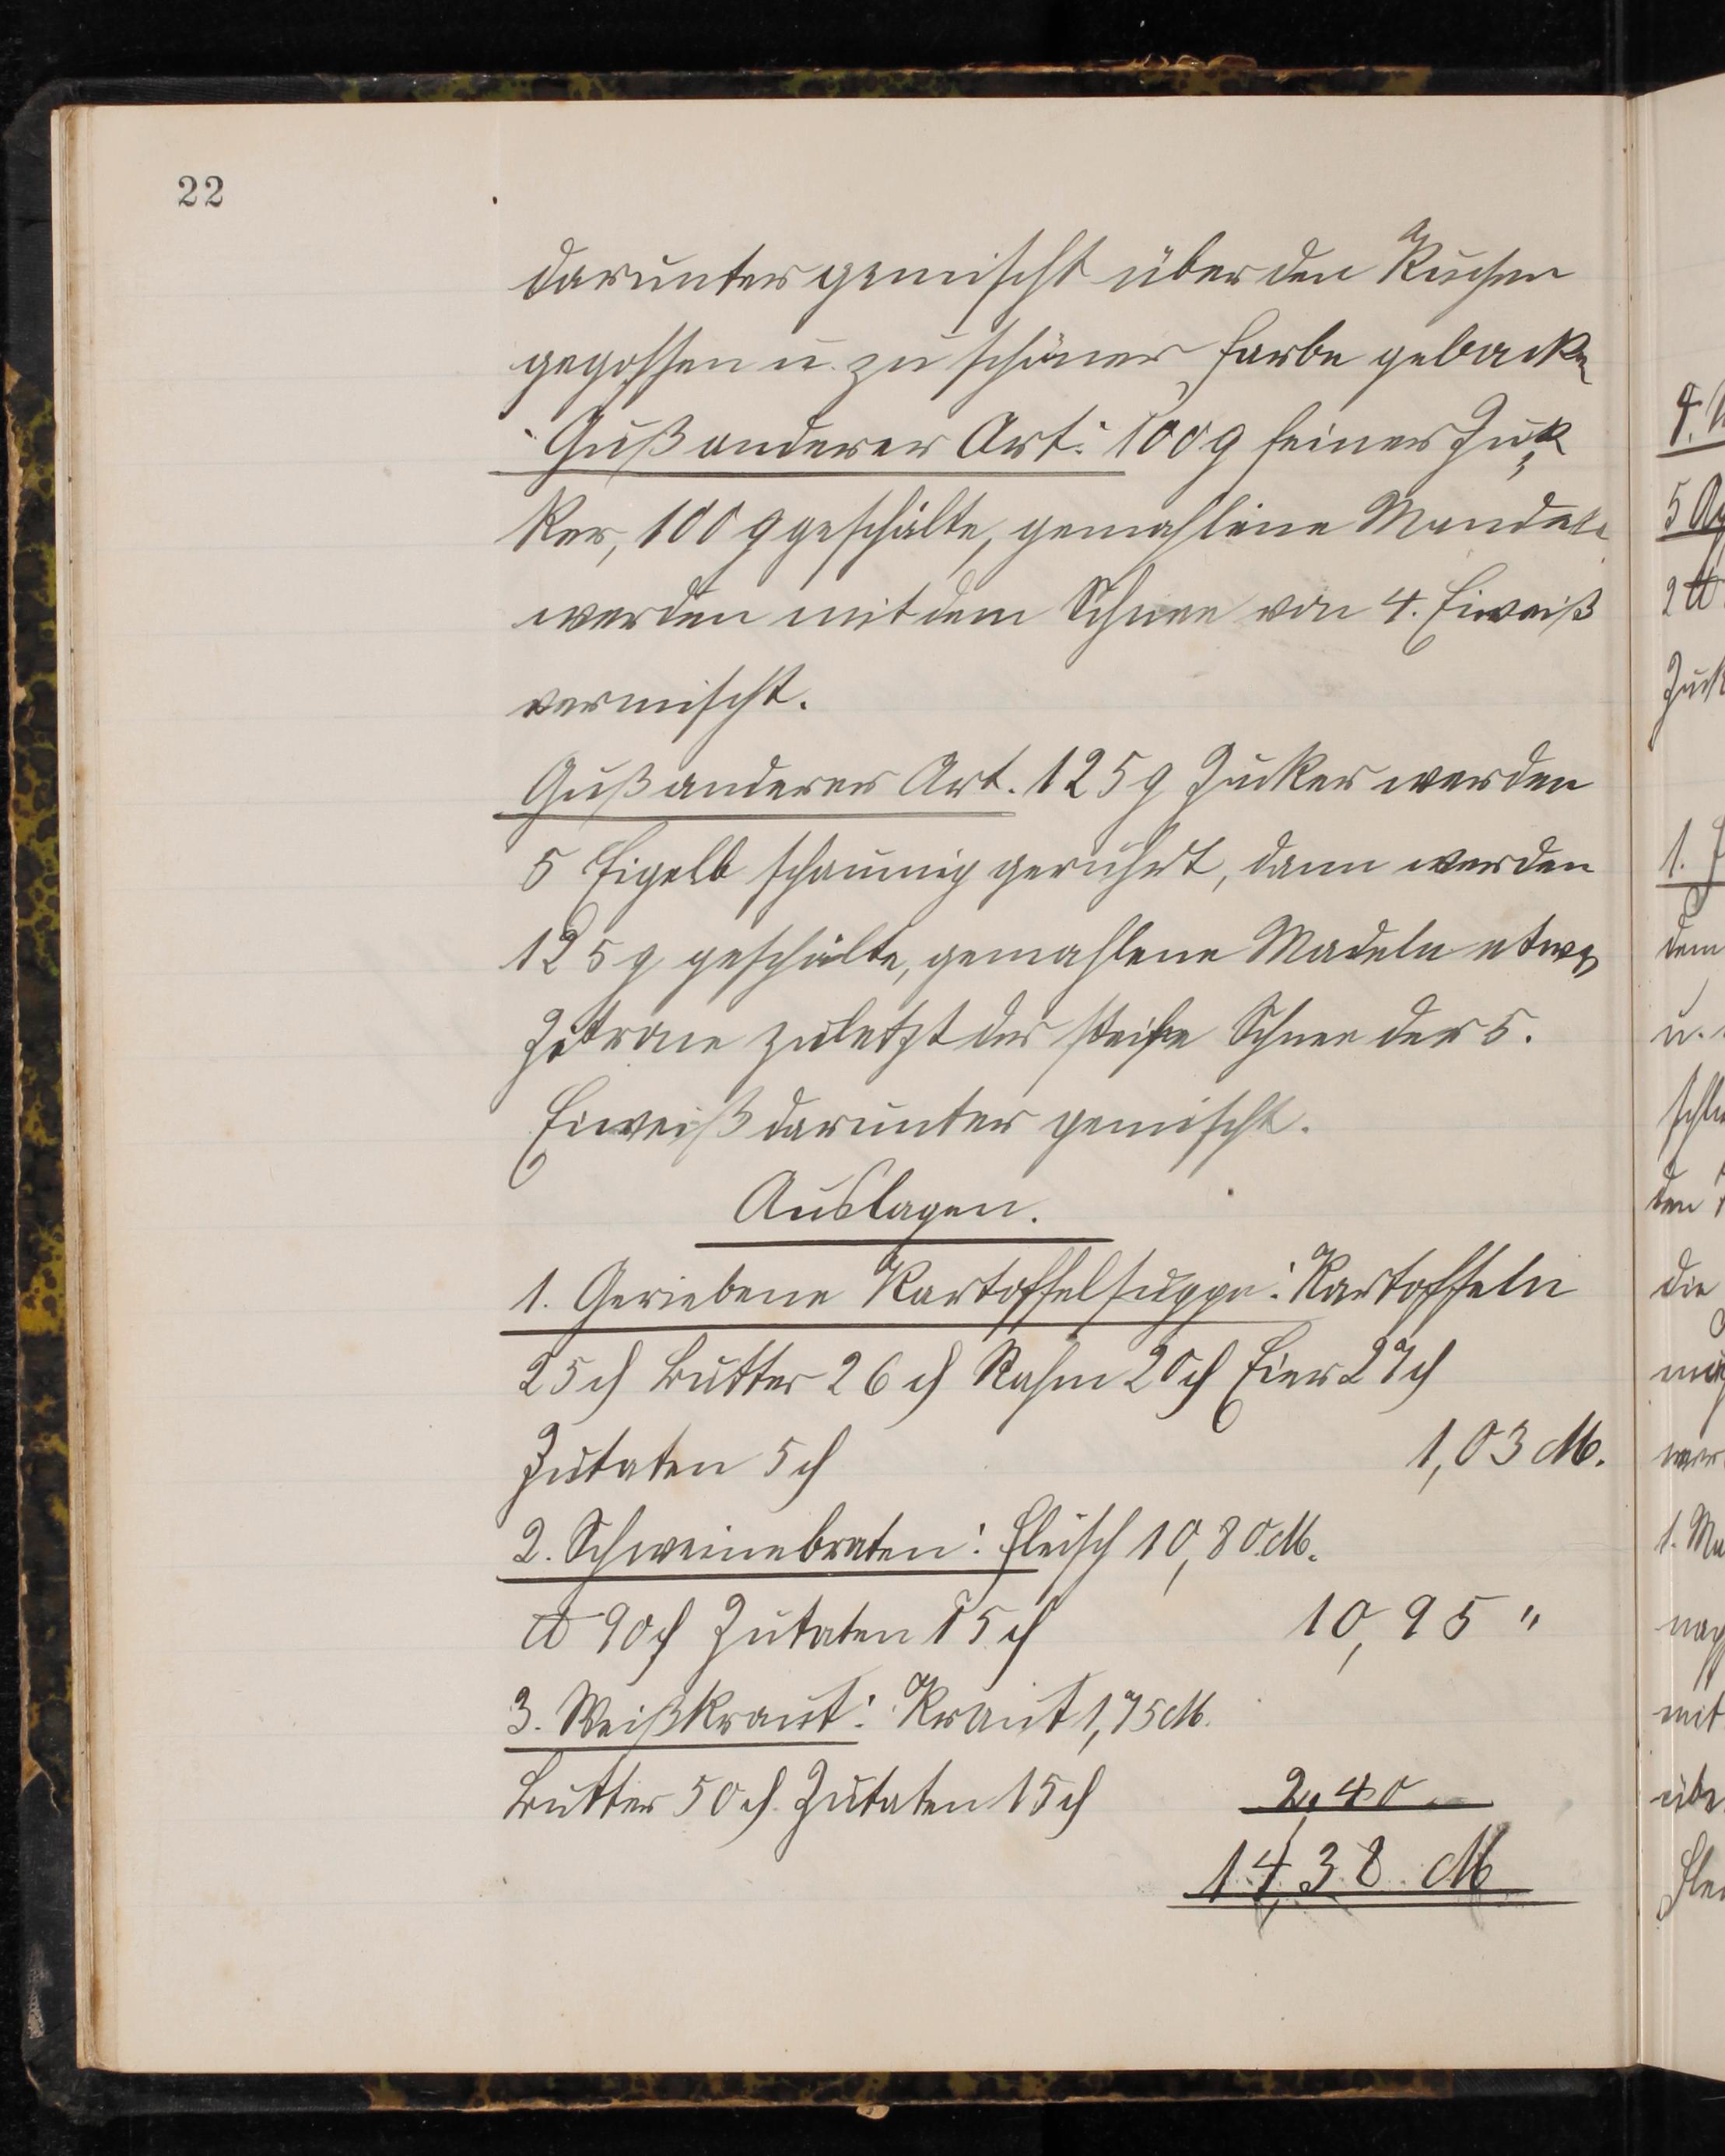 22
darunter gemischt über den Kuchen
gegossen u. zu schöner Farbe gebacken
Guß anderer Art: 100 g feiner Zuk¬
ker, 100 g geschälte, gemahlene Mandeln
werden mit dem Schnee von 4. Eiweiß
vermischt.
Guß anderer Art. 125 g Zucker werden
5 Eigelb schaumig gerührt, dann werden
125 g geschälte, gemahlene Madeln etwas
Zitrone zuletzt der steife Schnee der 5.
Eiweiß darunter gemischt.
Auslagen.
1. Geriebene Kartoffelsuppe: Kartoffeln
25 ₰ Butter 26 ₰ Rahm 20 ₰ Eier 27 ₰
Zutaten 5 ₰ 1,03 M.
2. Schweinebraten: Fleisch 10,80 M.
℔ 90 ₰ Zutaten 15 ₰ 10,95 "
3. Weißkraut: Kraut 1,75 M.
Butter 50 ₰. Zutaten 15 ₰ 2,40
14,38 M